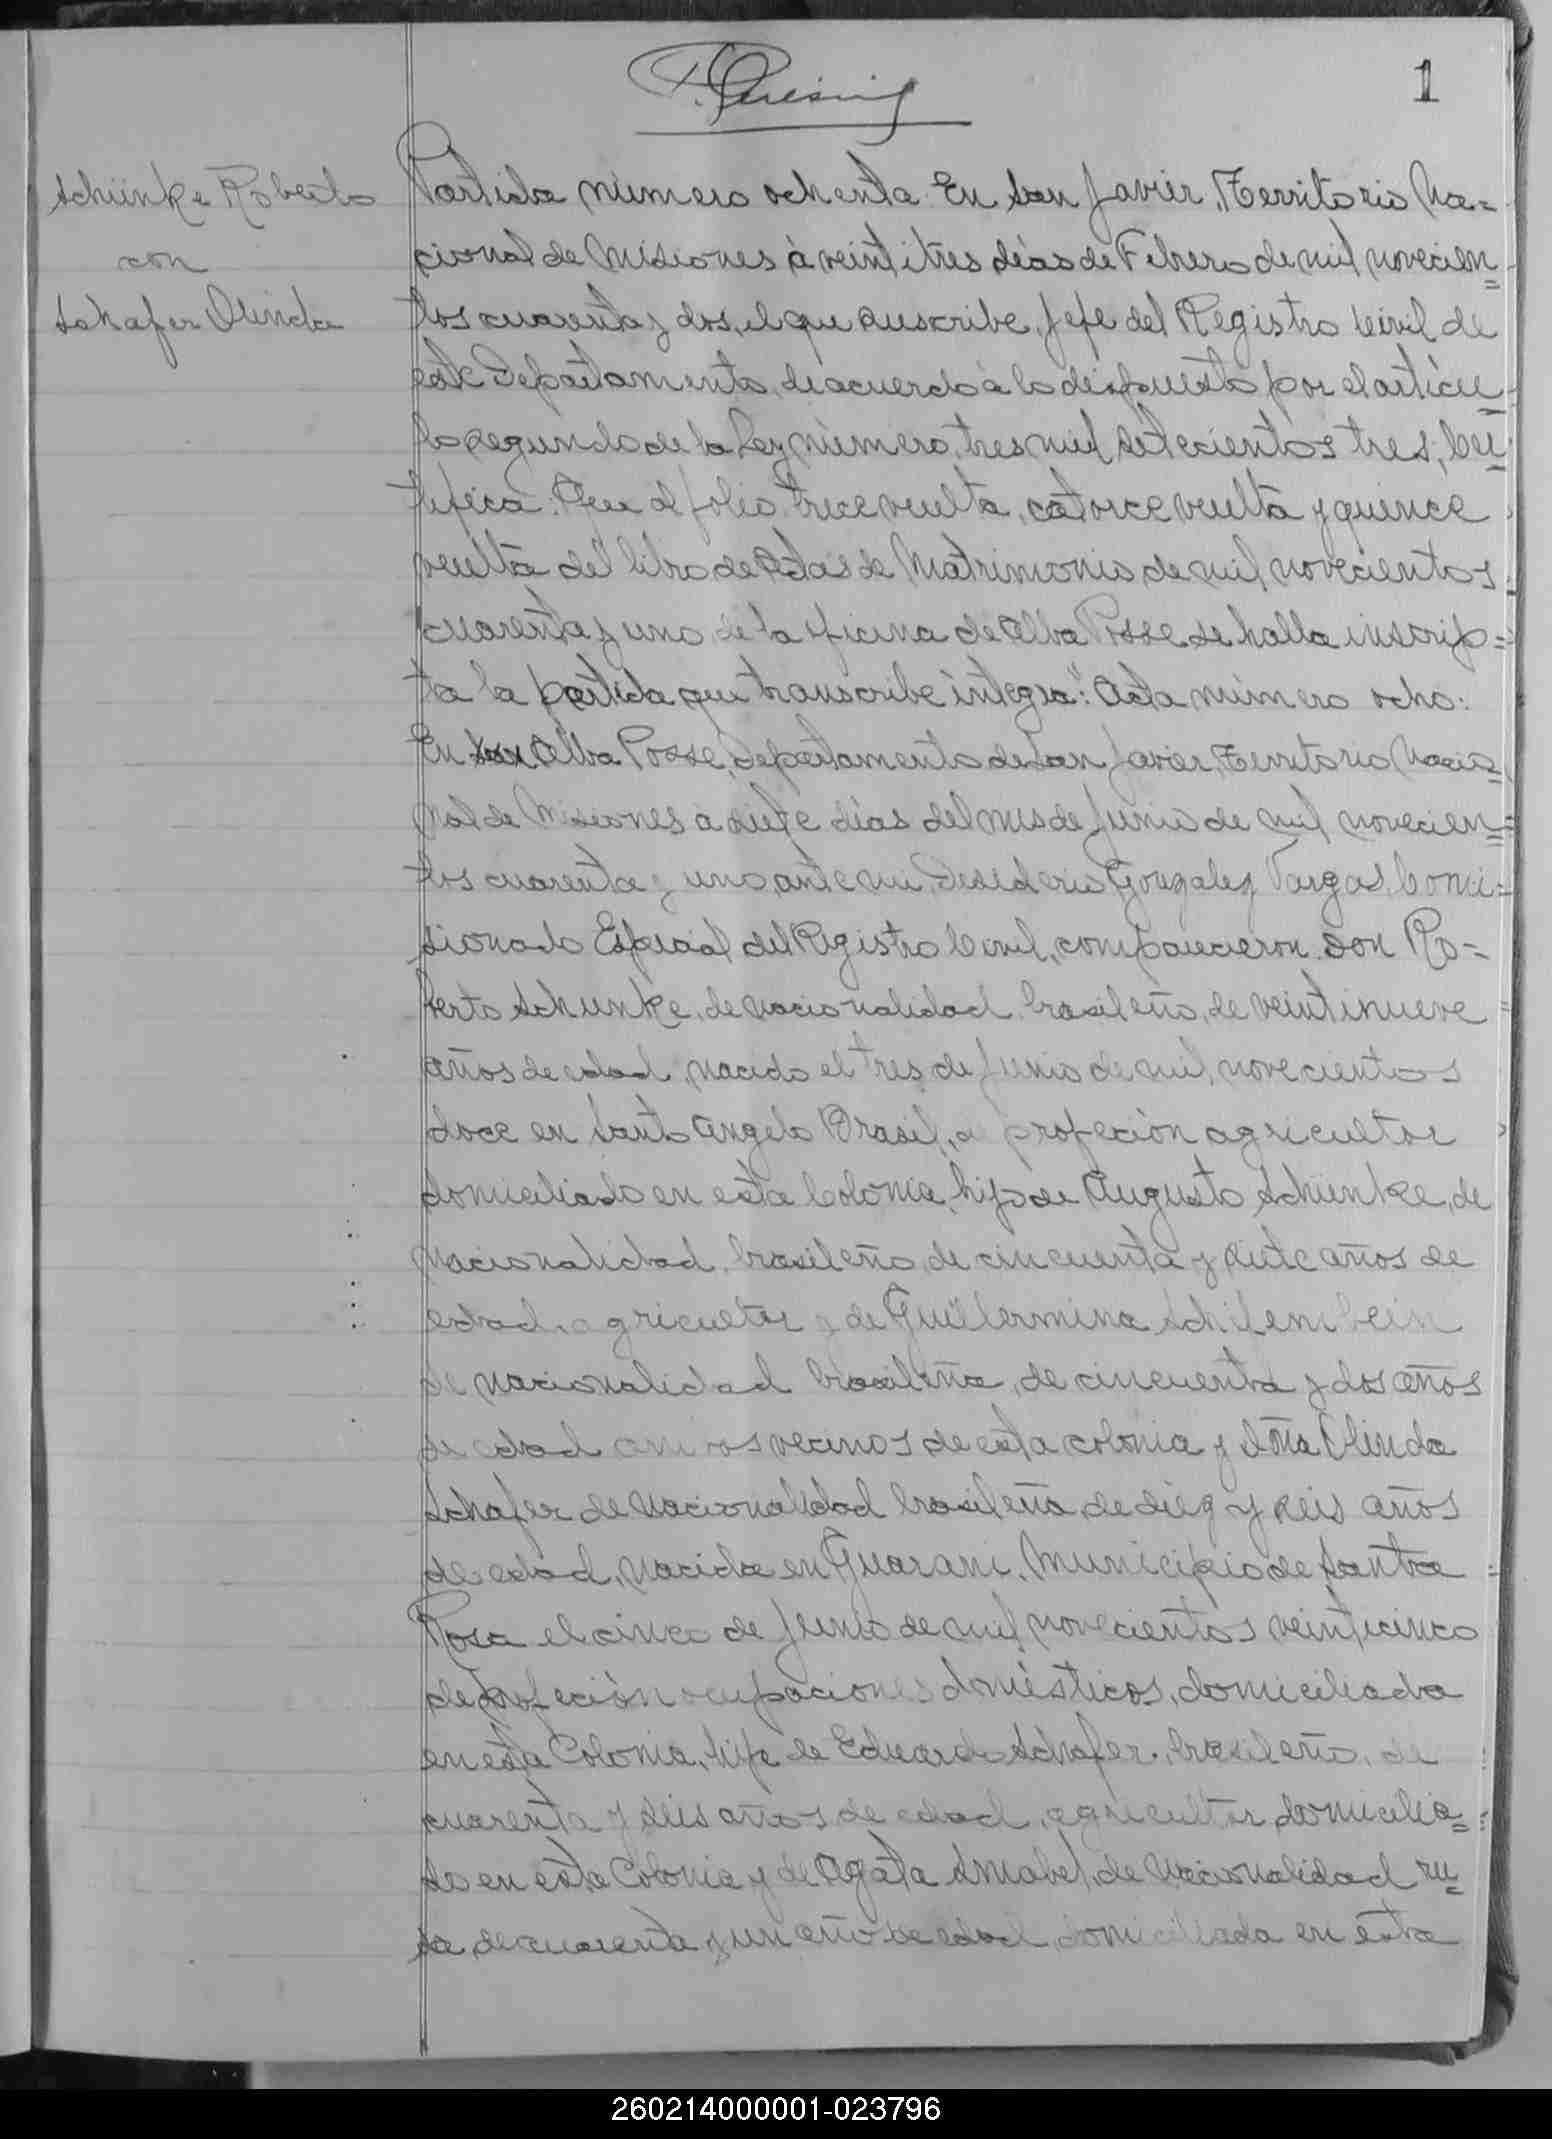 1
Schünke Roberto
con
Schafer Olinda
Partida número ochenta. En San Javier, Territorio Na=
cional de Misiones á veintitres días de Febrero de mil novecien=
tos cuarenta y dos, el que suscribe, Jefe del Registro Civil de
este Departamento, de acuerdo á lo dispuesto por el articu=
lo segundo de la Ley número, tres mil setecientos tres, Cer=
tifica: Que al folio, trece vuelta, catorce vuelta y quince
vuelta del libro de Actas de Matrimonio de mil novecientos
cuarenta y uno de la oficina de Alba Posse se halla inscrip=
ta la partida que transcribe íntegra": Acta número ocho:
En Alba Posse, Departamento de San Javier, Territorio Nacio=
nal de Misiones á siete días del mes de Junio de mil novecien=
tos cuarenta y uno, ante mi, Desiderio Gonzalez Vargas, Comi=
sionado Especial del Registro Civil, comparecieron Don Ro=
berto Schunke, de nacionalidad brasileña, de veintinueve
años de edad, nacido el tres de Junio de mil novecientos
doce en Santo Angelo Brasil, de profeción agricultor
domiciliado en esta Colonia, hijo de Augusto Schünke, de
nacionalidad brasileña, de cincuenta y siete años de
edad, agricultor y de Guillermina Schilembein
de nacionalidad brasileña, de cincuenta y dos años
de edad ambos vecinos de esta colonia y doña Olinda
Schafer de nacionalidad brasileña, de diez y seis años
de edad, nacida en Guarani, Municipio de Santa
Rosa el cinco de Junio de mil novecientos veinticinco
de profeción ocupaciones domésticos, domiciliada
en esta Colonia, hija de Eduardo Schafer, brasileño, de
cuarenta y seis años de edad, agricultor, domicilia=
do en esta Colonia y de Agata Smabel, de nacionalidad ru=
sa, de cuarenta y un año de edad, domiciliada en esta
260214000001-023796